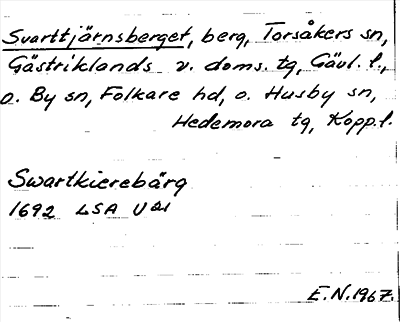 Svarttjärnsberget, berg, Torsåkers sn,
Gästriklands v. doms. tg, Gävl. l.,
o. By sn, Folkare hd, o. Husby sn,
Hedemora tg, Kopp. l.
Swartkierebärg
1692 LSA
E.N. 1967.